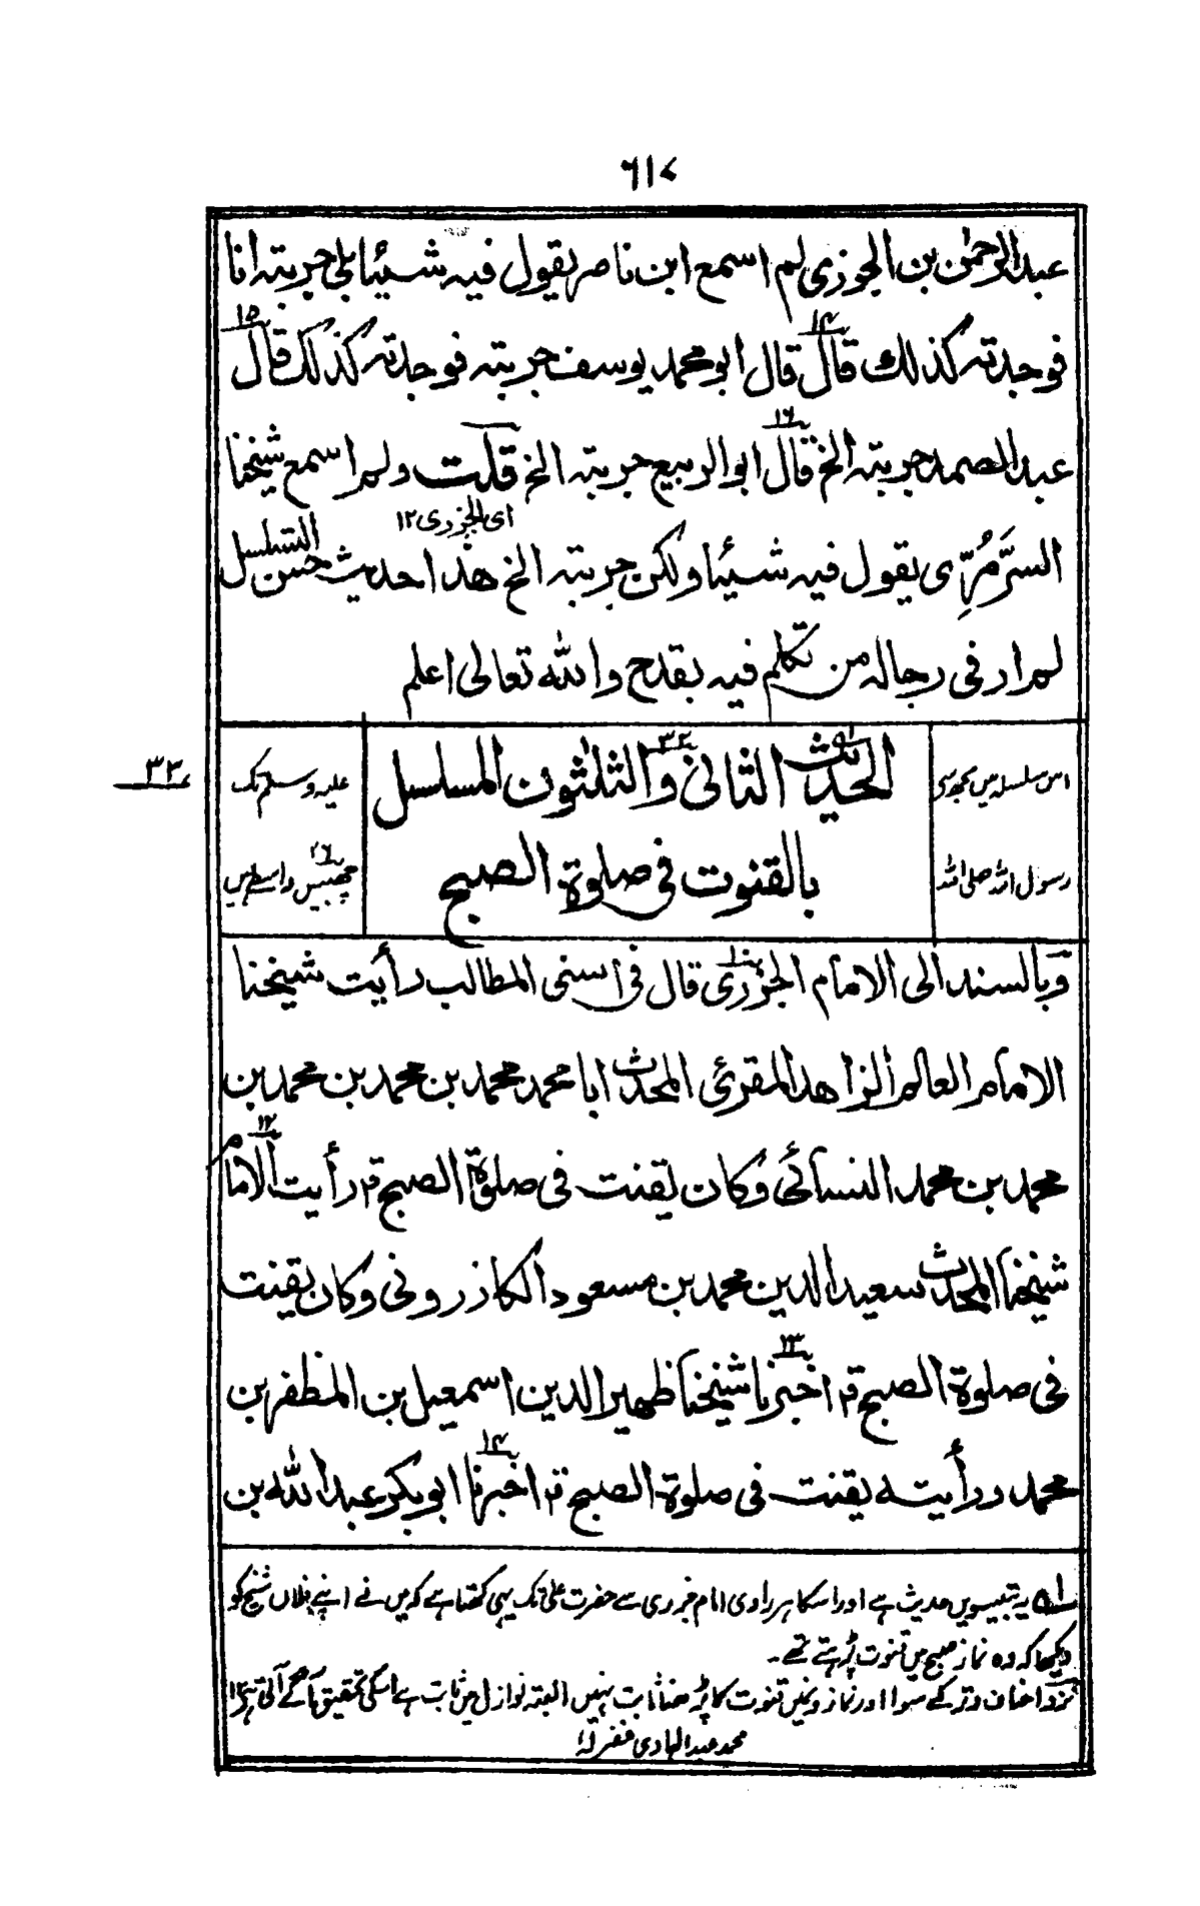 ۶۱۷
عبدالرحمٰن بن الجوزی لم اسمع ابن ناصر یقول فیہ شیئا بلی جربتہ انا
فوجدتہ کذلک قال ۱۴ قال ابو محمد یوسف جربتہ فوجدتہ کذلک قال ۱۵
عبدالصمد جربتہ الخ قال ۱۶ ابو الربیع جربتہ الخ قلت ولم اسمع شیخنا
ای الجزری ۱۲
السَّرَّمُرِّی یقول فیہ شیئا ولکن جربتہ الخ ھذا حدیث حسن التسلسل
لم ار فی رجالہ من تکلم فیہ بقدح واللّٰہ تعالی اعلم
اس سلسلہ میں مجھ سے
رسول اللہ صلی اللہ
الحدیث الثانی والثلثون ۳۲ المسلسل
بالقنوت فی صلوۃ الصبح
علیہ وسلم تک
چھبیس ۲۶ واسطے ہیں
۳۲
وبالسند الی الامام الجزری ۱۰ قال فی اسنی المطالب رأیت شیخنا
الامام العالم الزاھد المقرئ المحدث ابا محمد محمد بن محمد بن محمد بن
محمد بن محمد النسائی وکان یقنت فی صلوۃ الصبح قم رأیت ۱۲ الامام
شیخنا المحدث سعید الدین محمد بن مسعود الکازرونی وکان یقنت
فی صلوۃ الصبح قم اخبرنا ۱۳ شیخنا ظھیر الدین اسمعیل بن المظفر بن
محمد ورأیتہ یقنت فی صلوۃ الصبح قم اخبرنا ۱۴ ابوبکر عبد اللّٰہ بن
یہ بتیسویں حدیث ہے اور اسکا ہر راوی امام جزری سے حضرت علی تک یہی کہتا ہے کہ میں نے اپنے فلاں شیخ کو
دیکھا کہ وہ نماز صبح میں قنوت پڑہتے تھے۔
نزد احناف وتر کے سوا اور نمازونمیں قنوت کا پڑھنا ثابت نہیں البتہ نوازل میں ثابت ہے اسکی تحقیق آگے آتی ہے ۱۲
محمد عبد الہادی غفر لہ